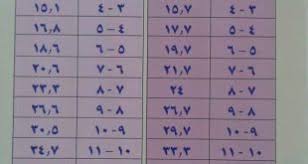 ٣ - ٤ ١٥,٧ ٣ - ٤ ١٥,١
٤ - ٥ ١٧,٧ ٤ - ٥ ١٦,٨
٥ - ٦ ١٩,٧ ٥ - ٦ ١٨,٦
٦ - ٧ ٢١,٧ ٦ - ٧ ٢٠,٦
٧ - ٨ ٢٤ ٧ - ٨ ٢٣,٣
٨ - ٩ ٢٦,٧ ٨ - ٩ ٢٦,٦
٩ - ١٠ ٢٩,٧ ٩ - ١٠ ٣٠,٥
١٠ - ١١ ٣٣,٣ ١٠ - ١١ ٣٤,٧